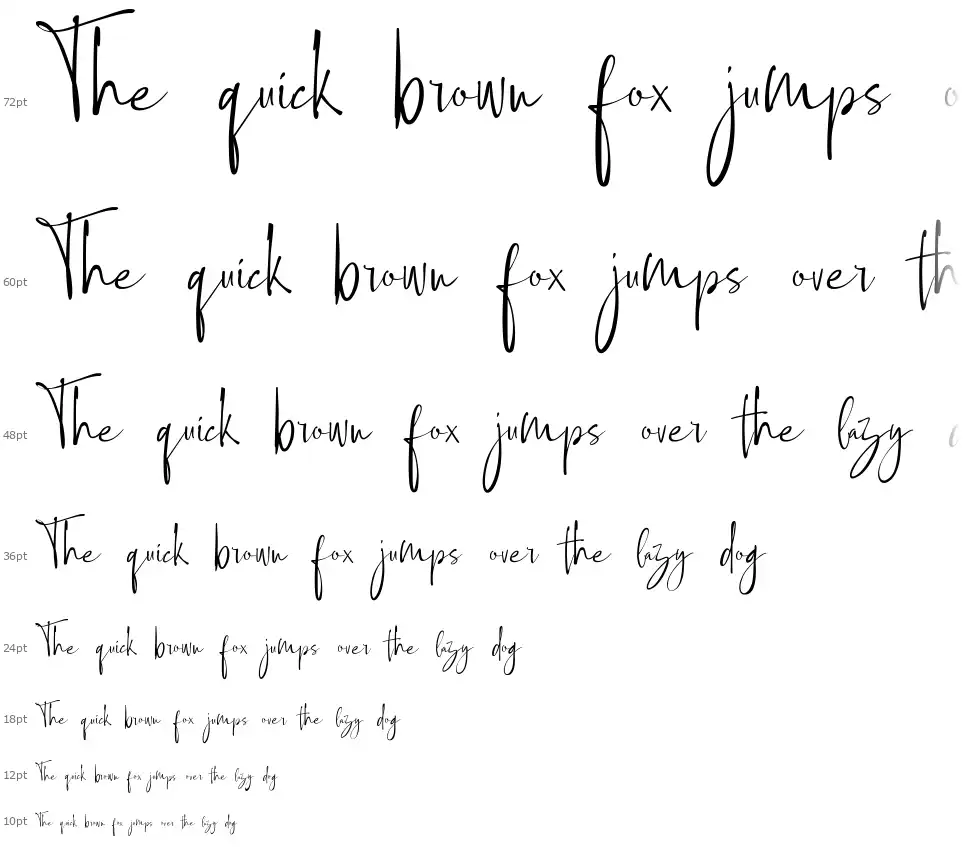 72pt The quick brown fox jumps o
60pt The quick brown fox jumps over th
48pt The quick brown fox jumps over the lazy
36pt The quick brown fox jumps over the lazy dog
24pt The quick brown fox jumps over the lazy dog
18pt The quick brown fox jumps over the lazy dog
12pt The quick brown fox jumps over the lazy dog
10pt The quick brown fox jumps over the lazy dog